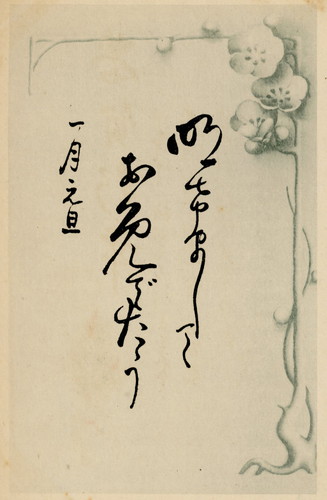 明けまして
お免でたう
一月元旦